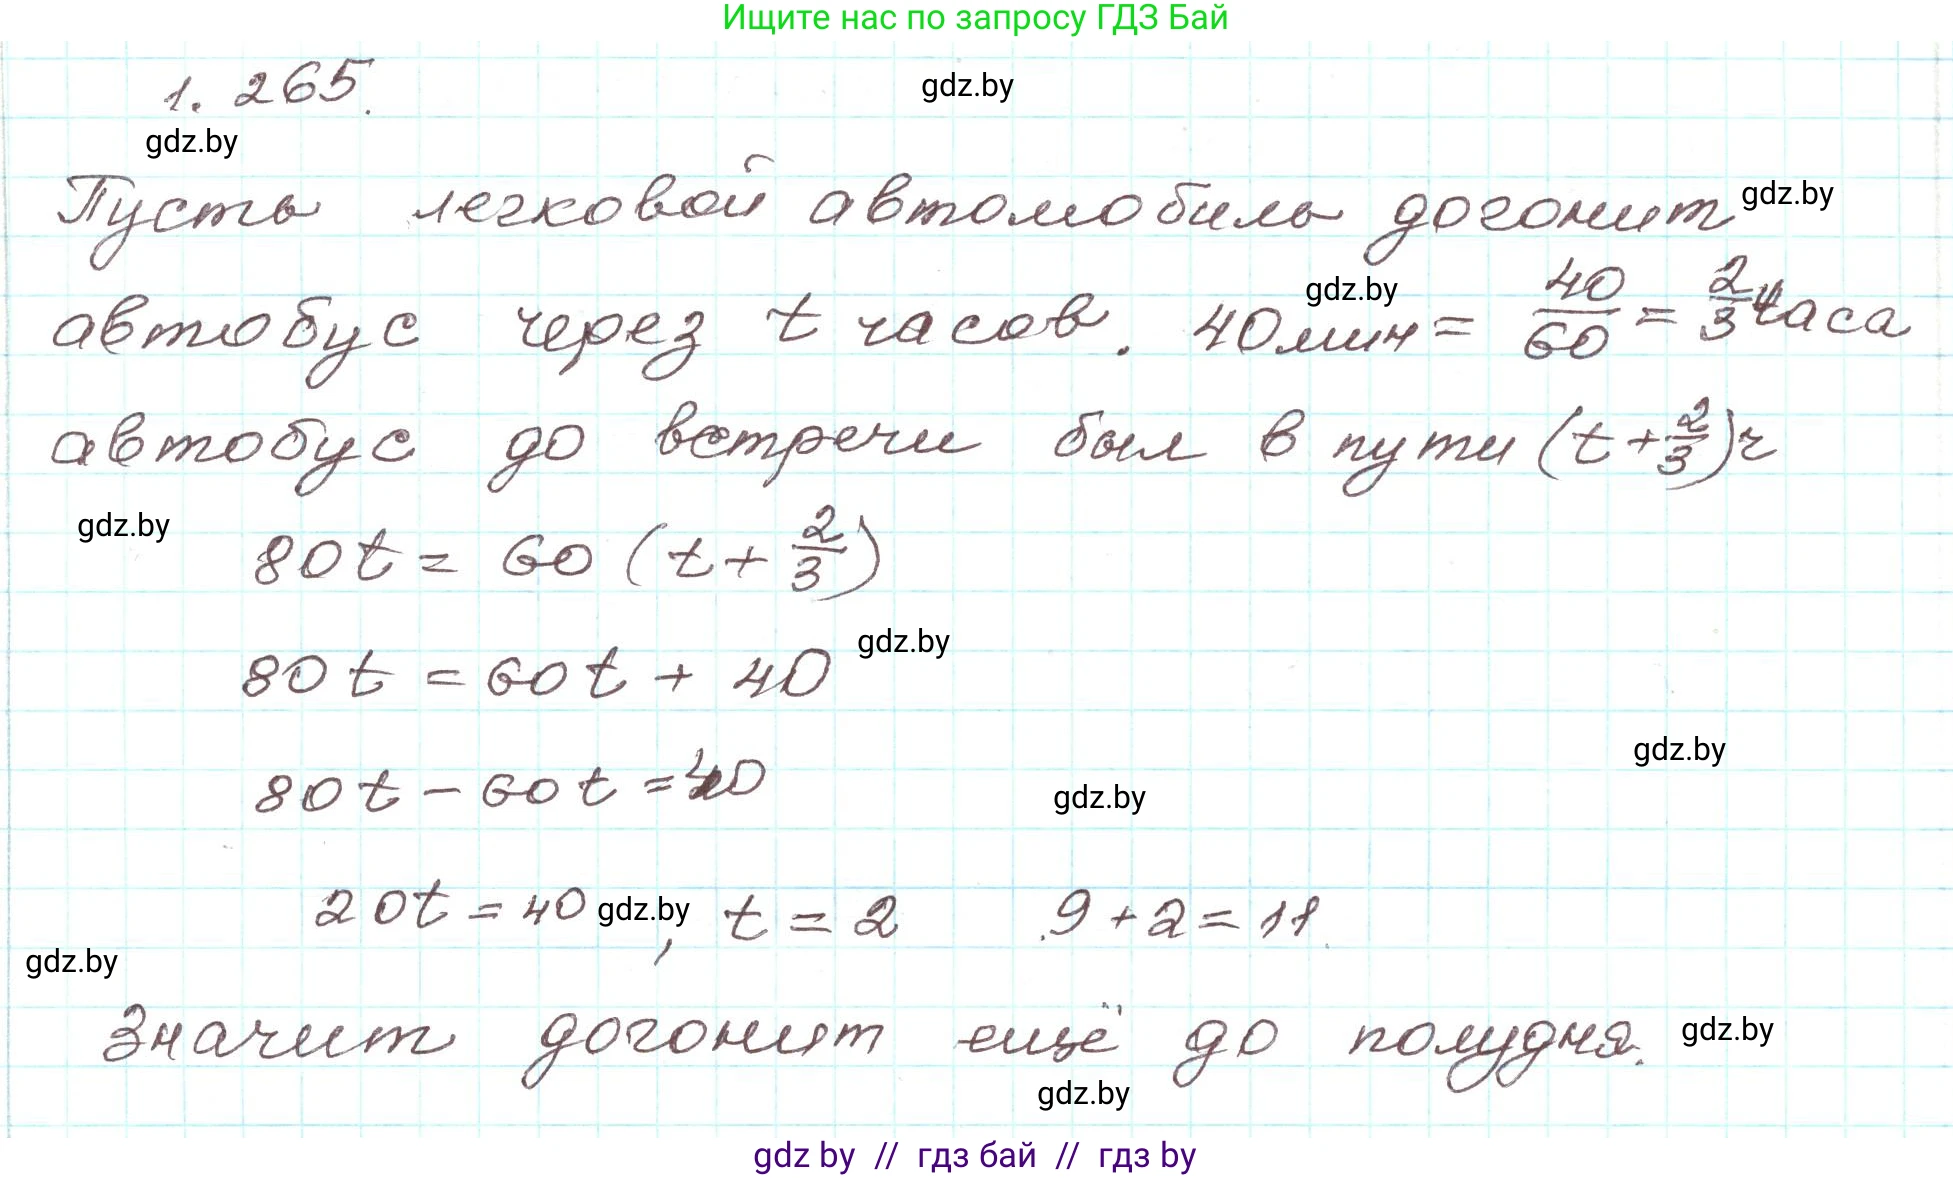 Ищите нас по запросу ГДЗ Бай
1. 265.
gdz.by
gdz.by
Пусть легковой автомобиль догонит gdz.by
автобус через t часов. 40мин = 40/60 = 2/3 часа
gdz.by
автобус до встречи был в пути (t + 2/3) ч
gdz.by
80t = 60 (t + 2/3)
80t = 60t + 40 gdz.by
gdz.by
80t - 60t = 40
gdz.by
20t = 40 gdz.by , t = 2 9 + 2 = 11
gdz.by
Значит догонит ещё до полудня. gdz.by
gdz.by
gdz by // гдз бай // гдз by